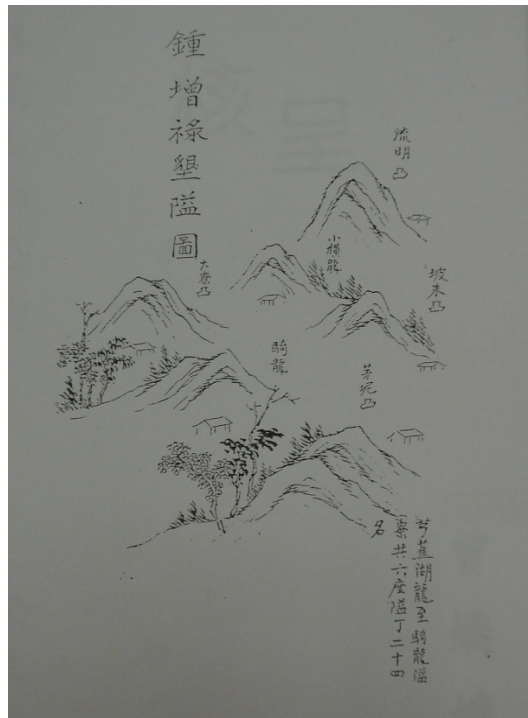 鍾增祿墾隘圖
流明凸
小橫
坡未凸
大寮凸
騎龍
茅坭凸
芎蕉湖龍至騎龍隘
寮共六座隘丁二十四
名